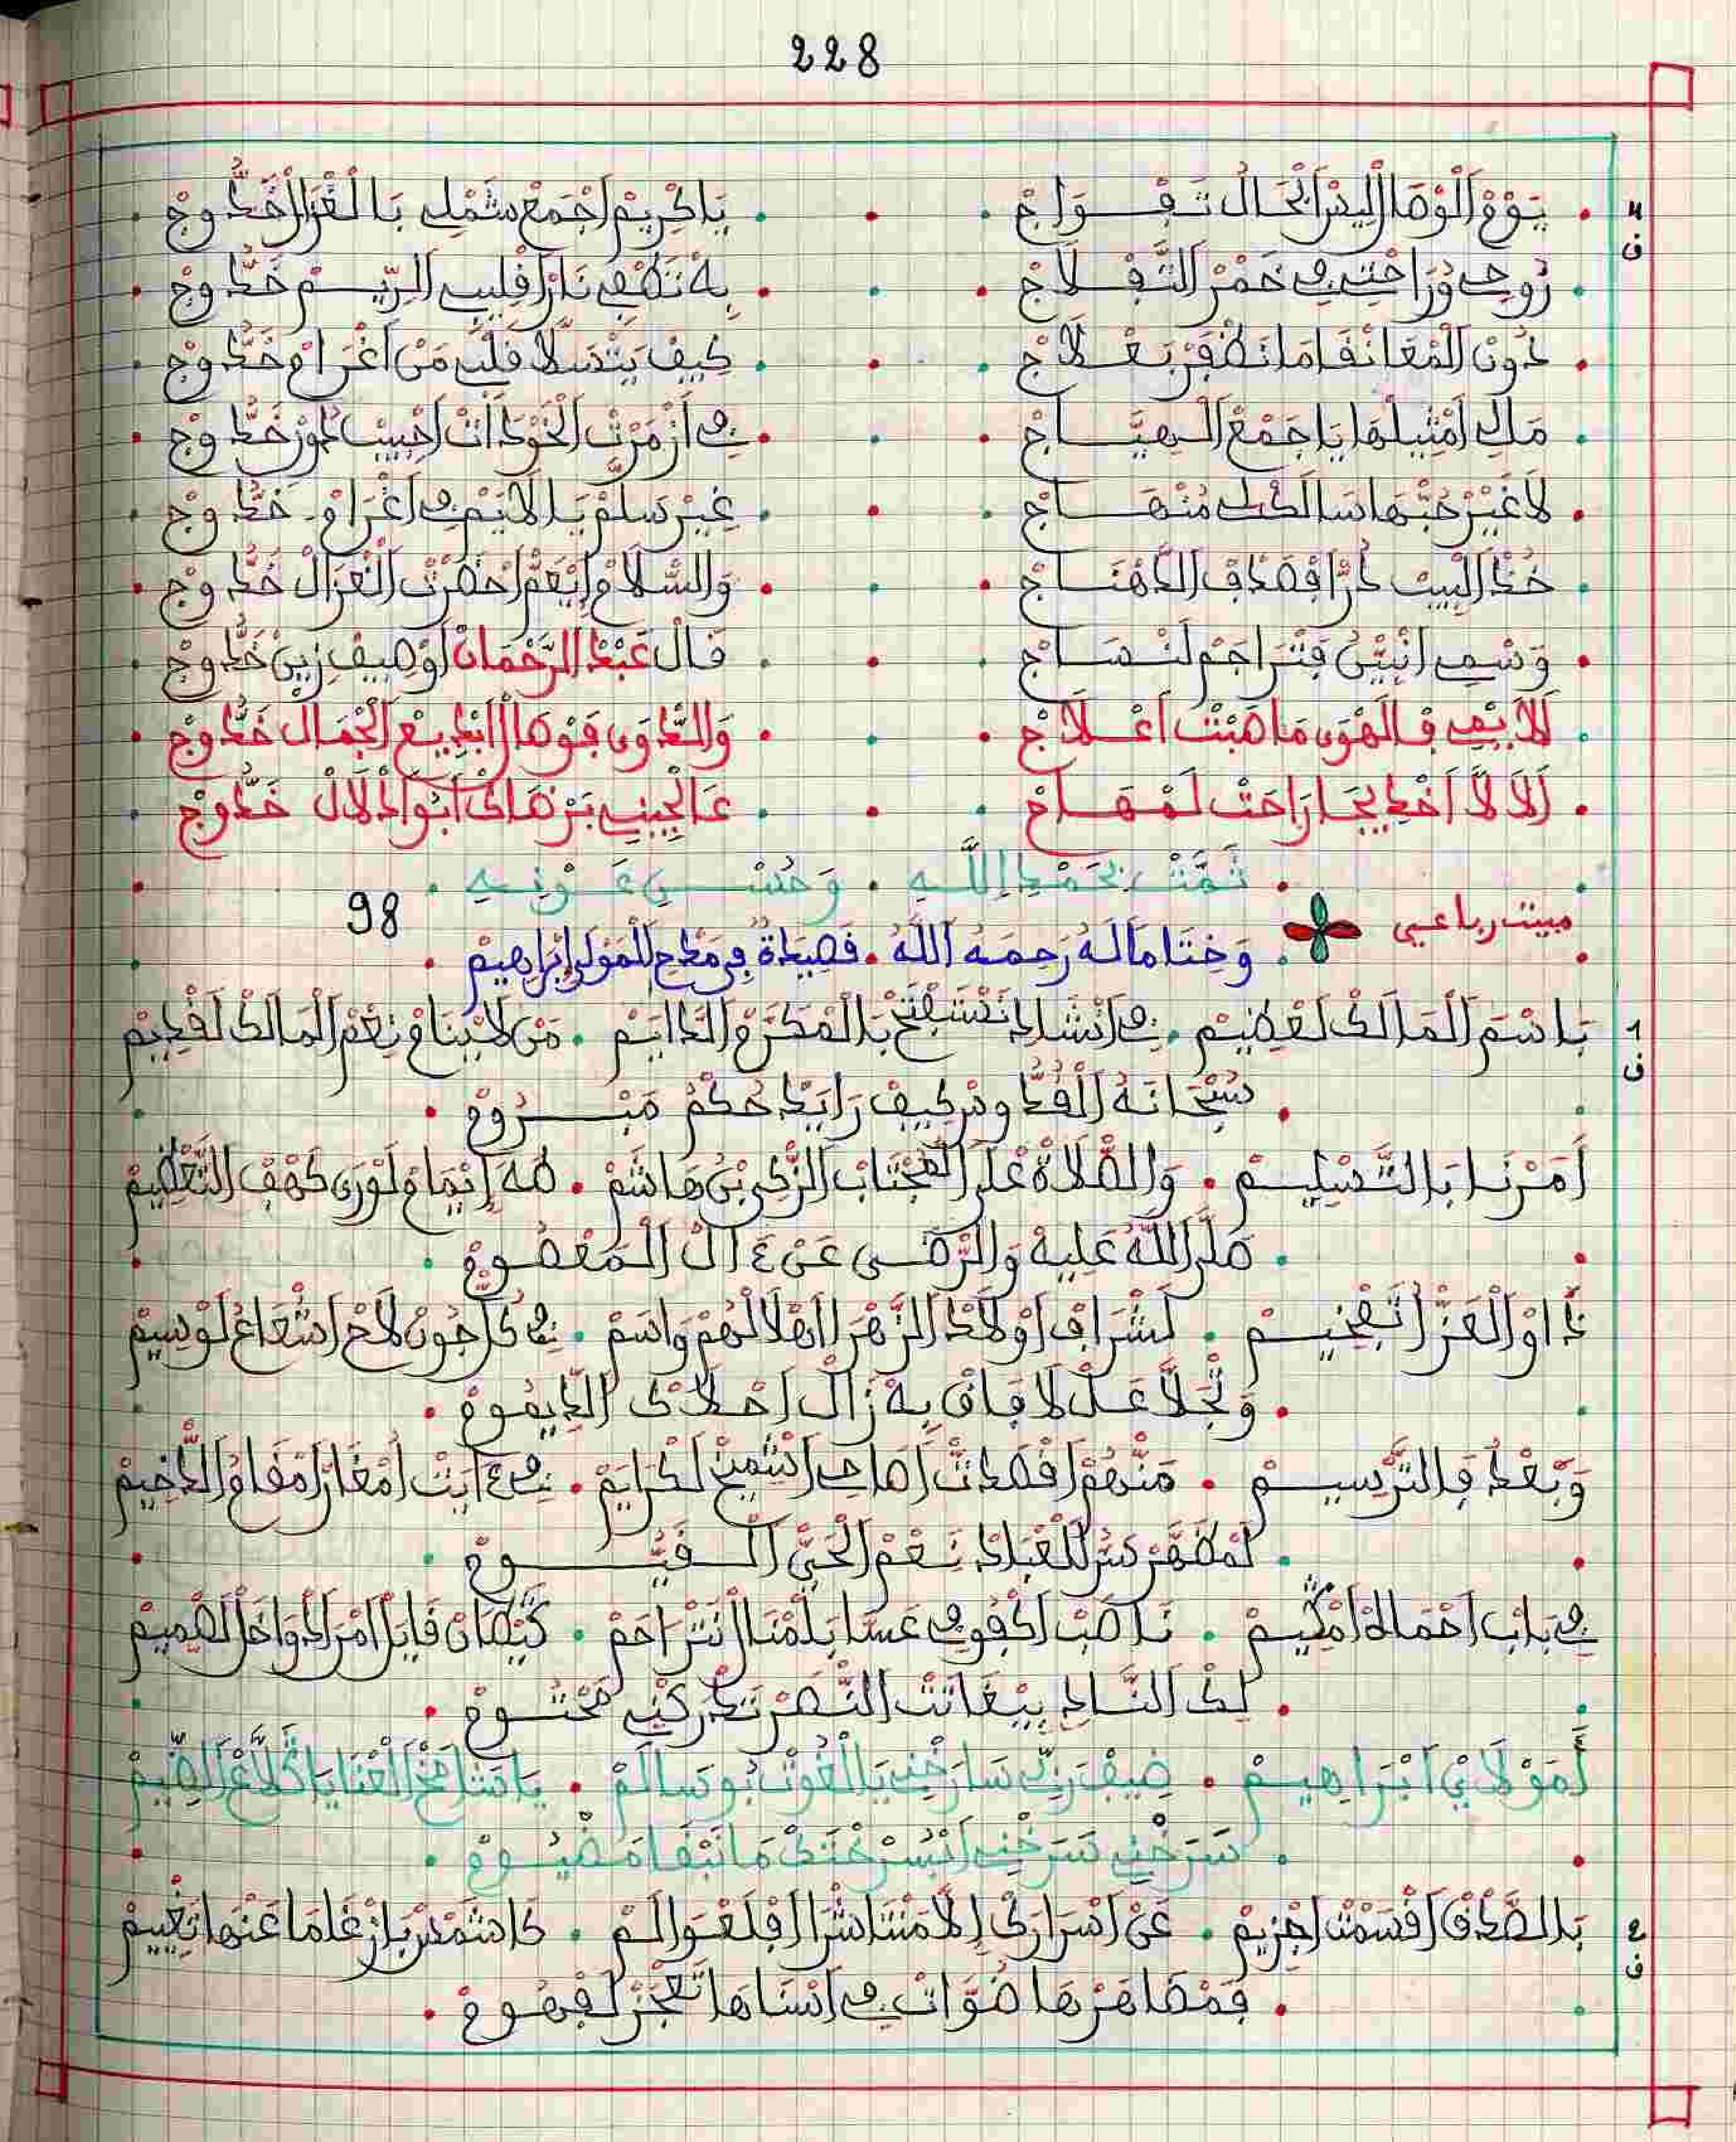 228
يَوْمْ الْوْصَالْ لِيسْرْ الْحَالْ تَفْوَاجْ • يَا كْرِيمْ اجْمَعْ شَمْلِي بَالْغْزَالْ خَدُّوجْ
رُوحِي وُرَاحْتِي فِي خَمْرْ التَّفْلَاجْ • بِهْ تَطْفِي نَارْ اقْلِيبِي الرِّيمْ خَدُّوجْ
دُونْ الْمْعَانْقَا مَا نَظْفَرْ بَعْلَاجْ • كِيفْ يَتْسَلَّا قَلْبِي مَنْ اغْرَامْ خَدُّوجْ
مَالِي امْثِيلْهَا يَا جَمْعْ الْهِيَّاجْ • فِي ازْمَرْتْ الْخَوْدَاتْ احْبِيبْ خَدُّوجْ
لَا غَيْرْ حُبّْهَا سَالَكْ لِي مُنْهَاجْ • غِيرْ سَلَّمْ يَا لَايَمْ فِي اغْرَامْ خَدُّوجْ
خُدْ الْبِيتْ دُرَّا قْصْدَافْ الدّْهْنَاجْ • وَالسّْلَامْ اِيْعَمْ احْضَرْتْ الْغْزَالْ خَدُّوجْ
وَسْمِي انْبِيّْنُ فَتْرَاجَمْ لَنْسَاجْ • قَالْ عَبْدْ الرَّحْمَانْ اوْصِيفْ زِينْ خَدُّوجْ
لَلَايْمِي فِالْهْوَى مَا هَبْتْ اعْلَاجْ • وَالدّْوَى فَوْصَالْ ابْدِيعْ الْجْمَالْ خَدُّوجْ
لَالَلَّا اخْدِيجَا رَاحَتْ لَمْهَاجْ • عَالْجِينِي بَرْضَاكْ ابُو ادْلَالْ خَدُّوجْ
تَمَّتْ بِحَمْدِ اللَّهِ • وَحُسْنِ عَوْنِهِ
98
مبيت رباعي
وَخِتَامًا لَهُ رَحِمَهُ اللَّهُ • قَصِيدَةٌ فِي مَدْحِ الْمَوْلَى إِبْرَاهِيمْ
بَاسْمَ الْمَالَكْ لَعْظِيمْ • فِي انْشَادِي نَسْتَفْتَحْ بَالْمَكْرَمْ الدَّايَمْ • مَنْ لَا يْنَامْ نِعْمَ الْمَالَكْ لَقْدِيمْ
سُبْحَانَهُ الْقُدُّوسْ كِيفْ رَايَدْ حُكْمُ مَبْرُومْ
أَمَرْنَا بَالتَّسْلِيمْ • وَالصَّلَاةْ عْلَى الْمُجْتَابْ الزّْكِي بْنْ هَاشَمْ • طَهَ إِيمَامْ لَوْرَى كَهْفْ التَّعْظِيمْ
صَلَّى اللَّهُ عَلِيهْ وَالرّْضَى عَنْ ءَالْ الْمَعْصُومْ
دَاوْ الْعَزّْ اتَّفْخِيمْ • لَشْرَافْ اوْلَادْ الزَّهْرَا اهْلَالْهُمْ وَاسَمْ • فِي كُلّْ جُونْ لَاحْ اشْعَاعُ لَوْسِيمْ
وَتْجَلَّا عَلْ لَافَاقْ بِهْ زَالْ احْلَاكْ الدِّيمُومْ
وَبَعْدْ فِالتَّرْسِيمْ • مَنْهُمْ اقْصَدْتْ اصَاحِي اشْمِيخْ لَكْرَايَمْ • فِي ءَايَتْ امْغَارْ امْقَامُ الدّْخِيمْ
لَمْطَهَّرْ سَرّْ الْعْبَادْ نَعْمْ الْحَيّْ الْقَيُّومْ
فِي بَابْ احْمَاهْ امْقِيمْ • نَاصَبْ اكْفُوفِي عَسَا بَلْمْنَا انَتْرَاحَمْ • كِيْصَانْ قَابَلْ امْرَادُ وَاخَا الصّْمِيمْ
لِكْ النَّادِي بِيغَاتَتْ النّْصَرْ تَدْرَكْنِي مَحْتُومْ
أَمَوْلَايْ ابْرَاهِيمْ • ضِيفْ رَبِّي سَارَحْنِي يَا الْغُوتْ بُوسَالَمْ • يَا شَامَخْ الْعْنَايَا يَا كْلَاعْ الضِّيمْ
سَرَحْنِي سَرَحْنِي ابْسُرْحْتَكْ مَا نَبْقَا مَضْيُومْ
بَالصَّدْقْ اقْسَمْتْ اجْزِيمْ • عَنْ اسْرَارَكْ إِلَا مَنْتَاشْرَا اقْلَعْوَالَمْ • كَا شَمْسْ بَازْغَا مَا عَنْهَا تَغْيِيمْ
فَمْظَاهَرْهَا ضْوَاتْ فِي اسْنَاهَا تَعْجَزْ لَفْهُومْ